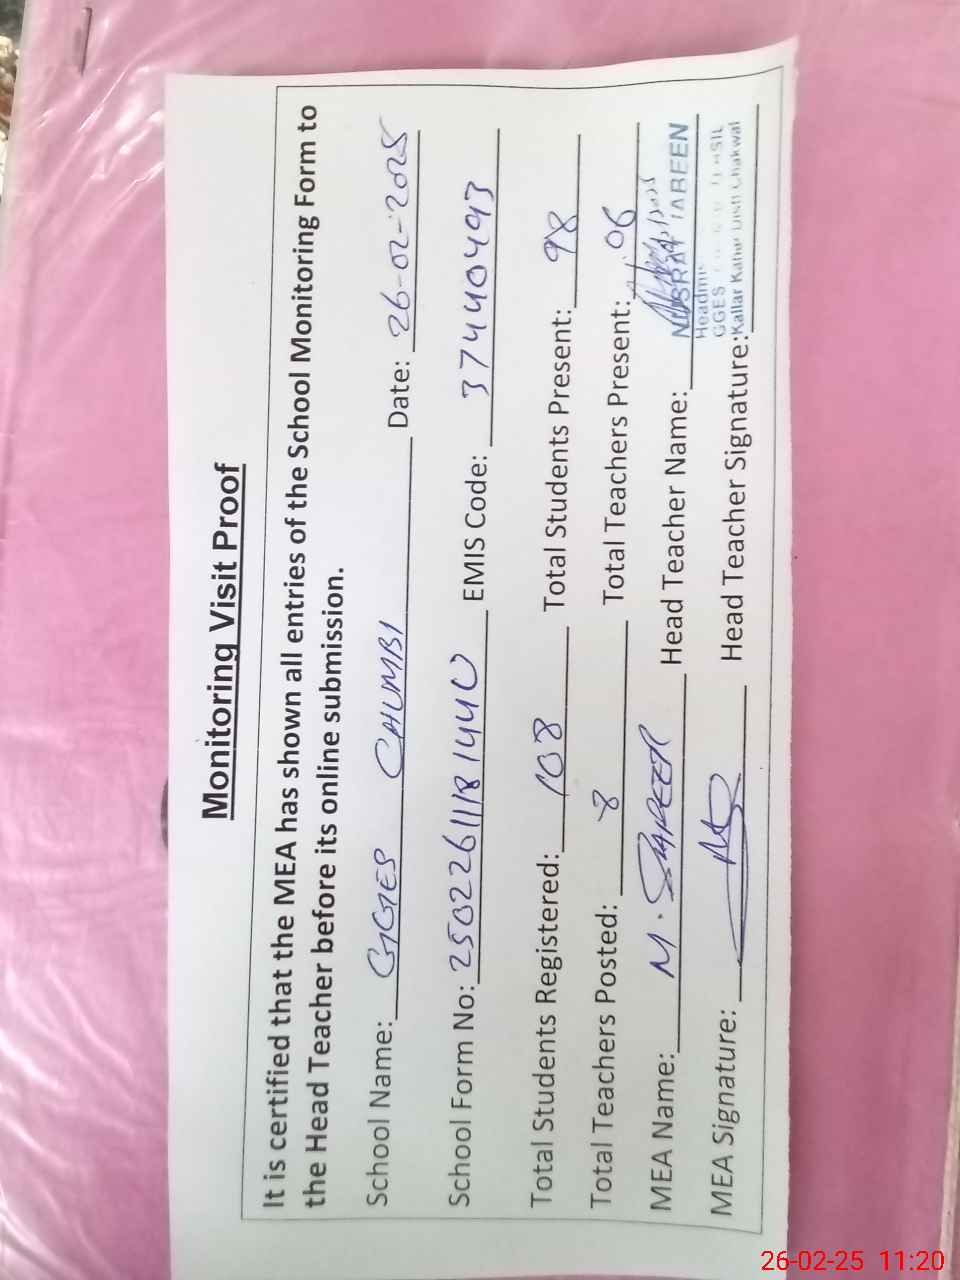 Monitoring Visit Proof
It is certified that the MEA has shown all entries of the School Monitoring Form to
the Head Teacher before its online submission.
School Name: GGES CHUMBI Date: 26-02-2025
School Form No: 25022611181440 EMIS Code: 37440493
Total Students Registered: 108 Total Students Present: 98
Total Teachers Posted: 8 Total Teachers Present: 06
MEA Name: M. SHAPEER Head Teacher Name: NUSRAT JABEEN
Headmis
GGES TEHSIL
Kallar Kahar Distt Chakwal
MEA Signature: Head Teacher Signature:
26-02-25 11:20